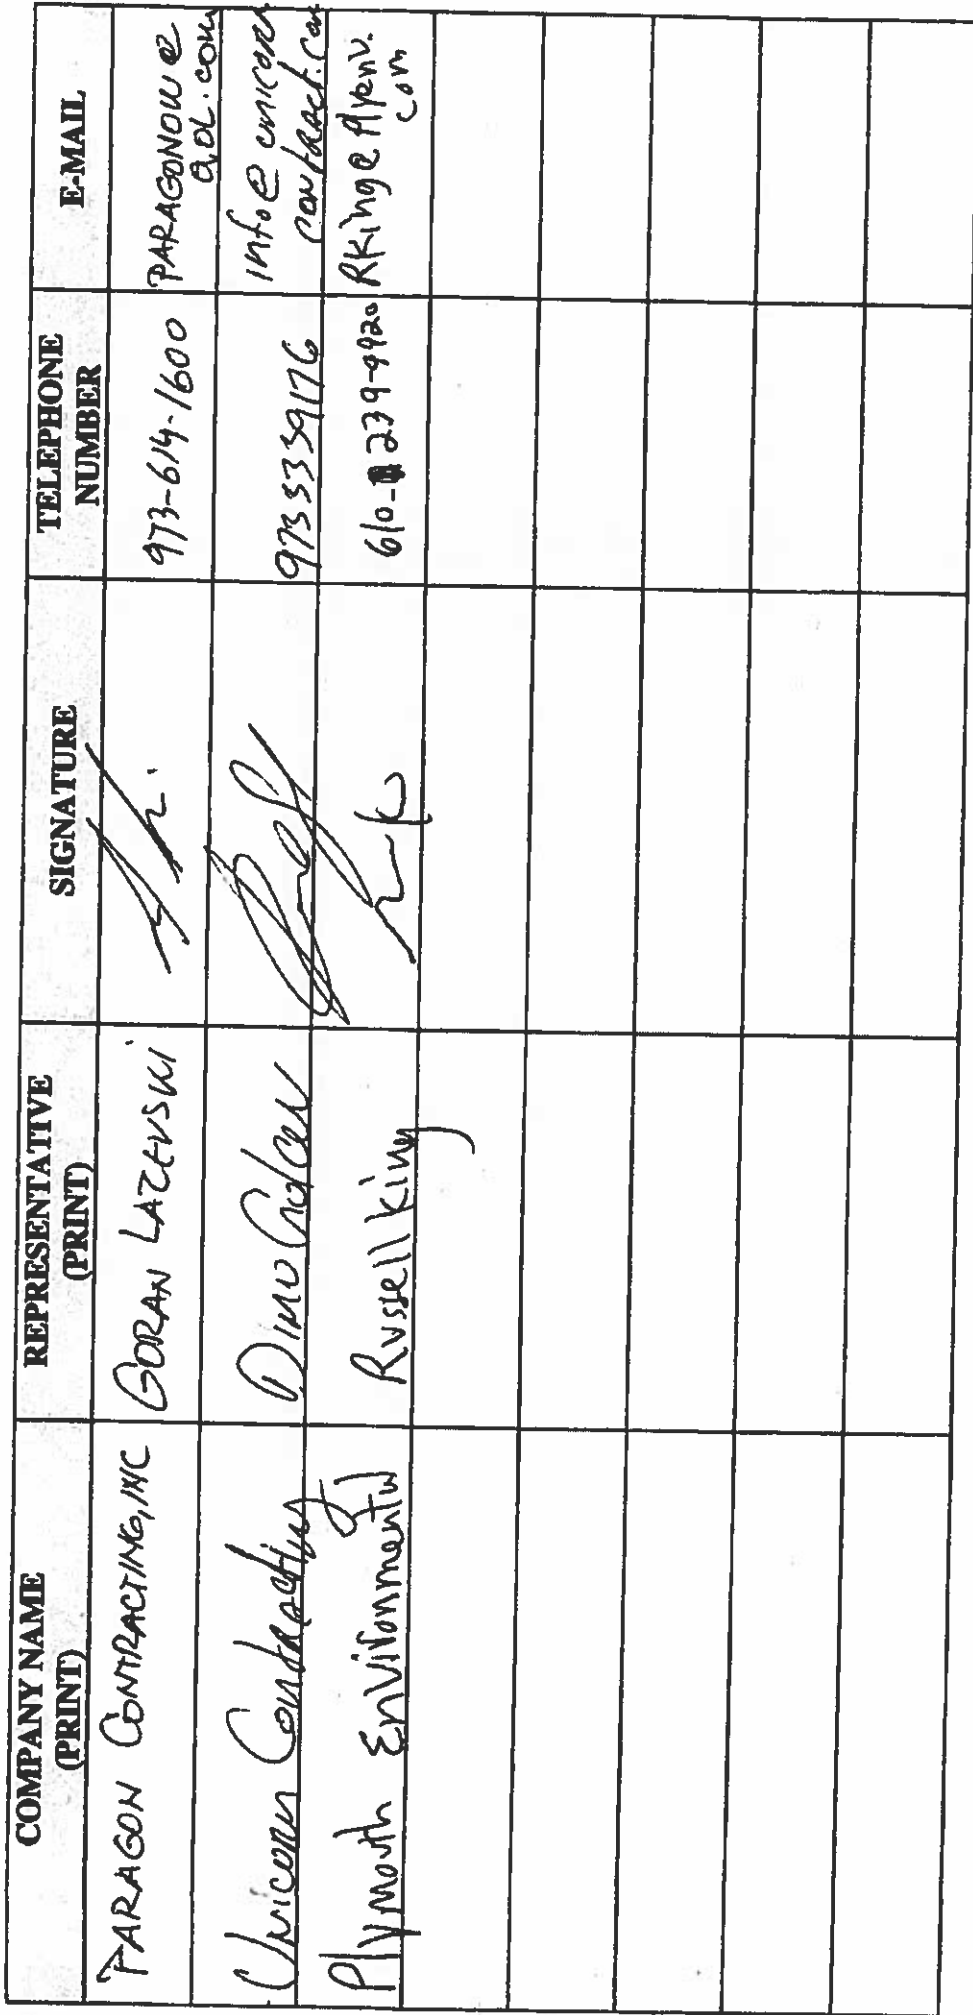 COMPANY NAME (PRINT) REPRESENTATIVE (PRINT) SIGNATURE TELEPHONE NUMBER E-MAIL
PARAGON CONTRACTING, INC GORAN LAZEVSKI 973-614-1600 PARAGONOW@aol.com
Unicorn Contracting Dimo 9733339176 info@unicorn contract.com
Plymouth Environmental Russell King 610-239-9920 RKing@Plyenv.com